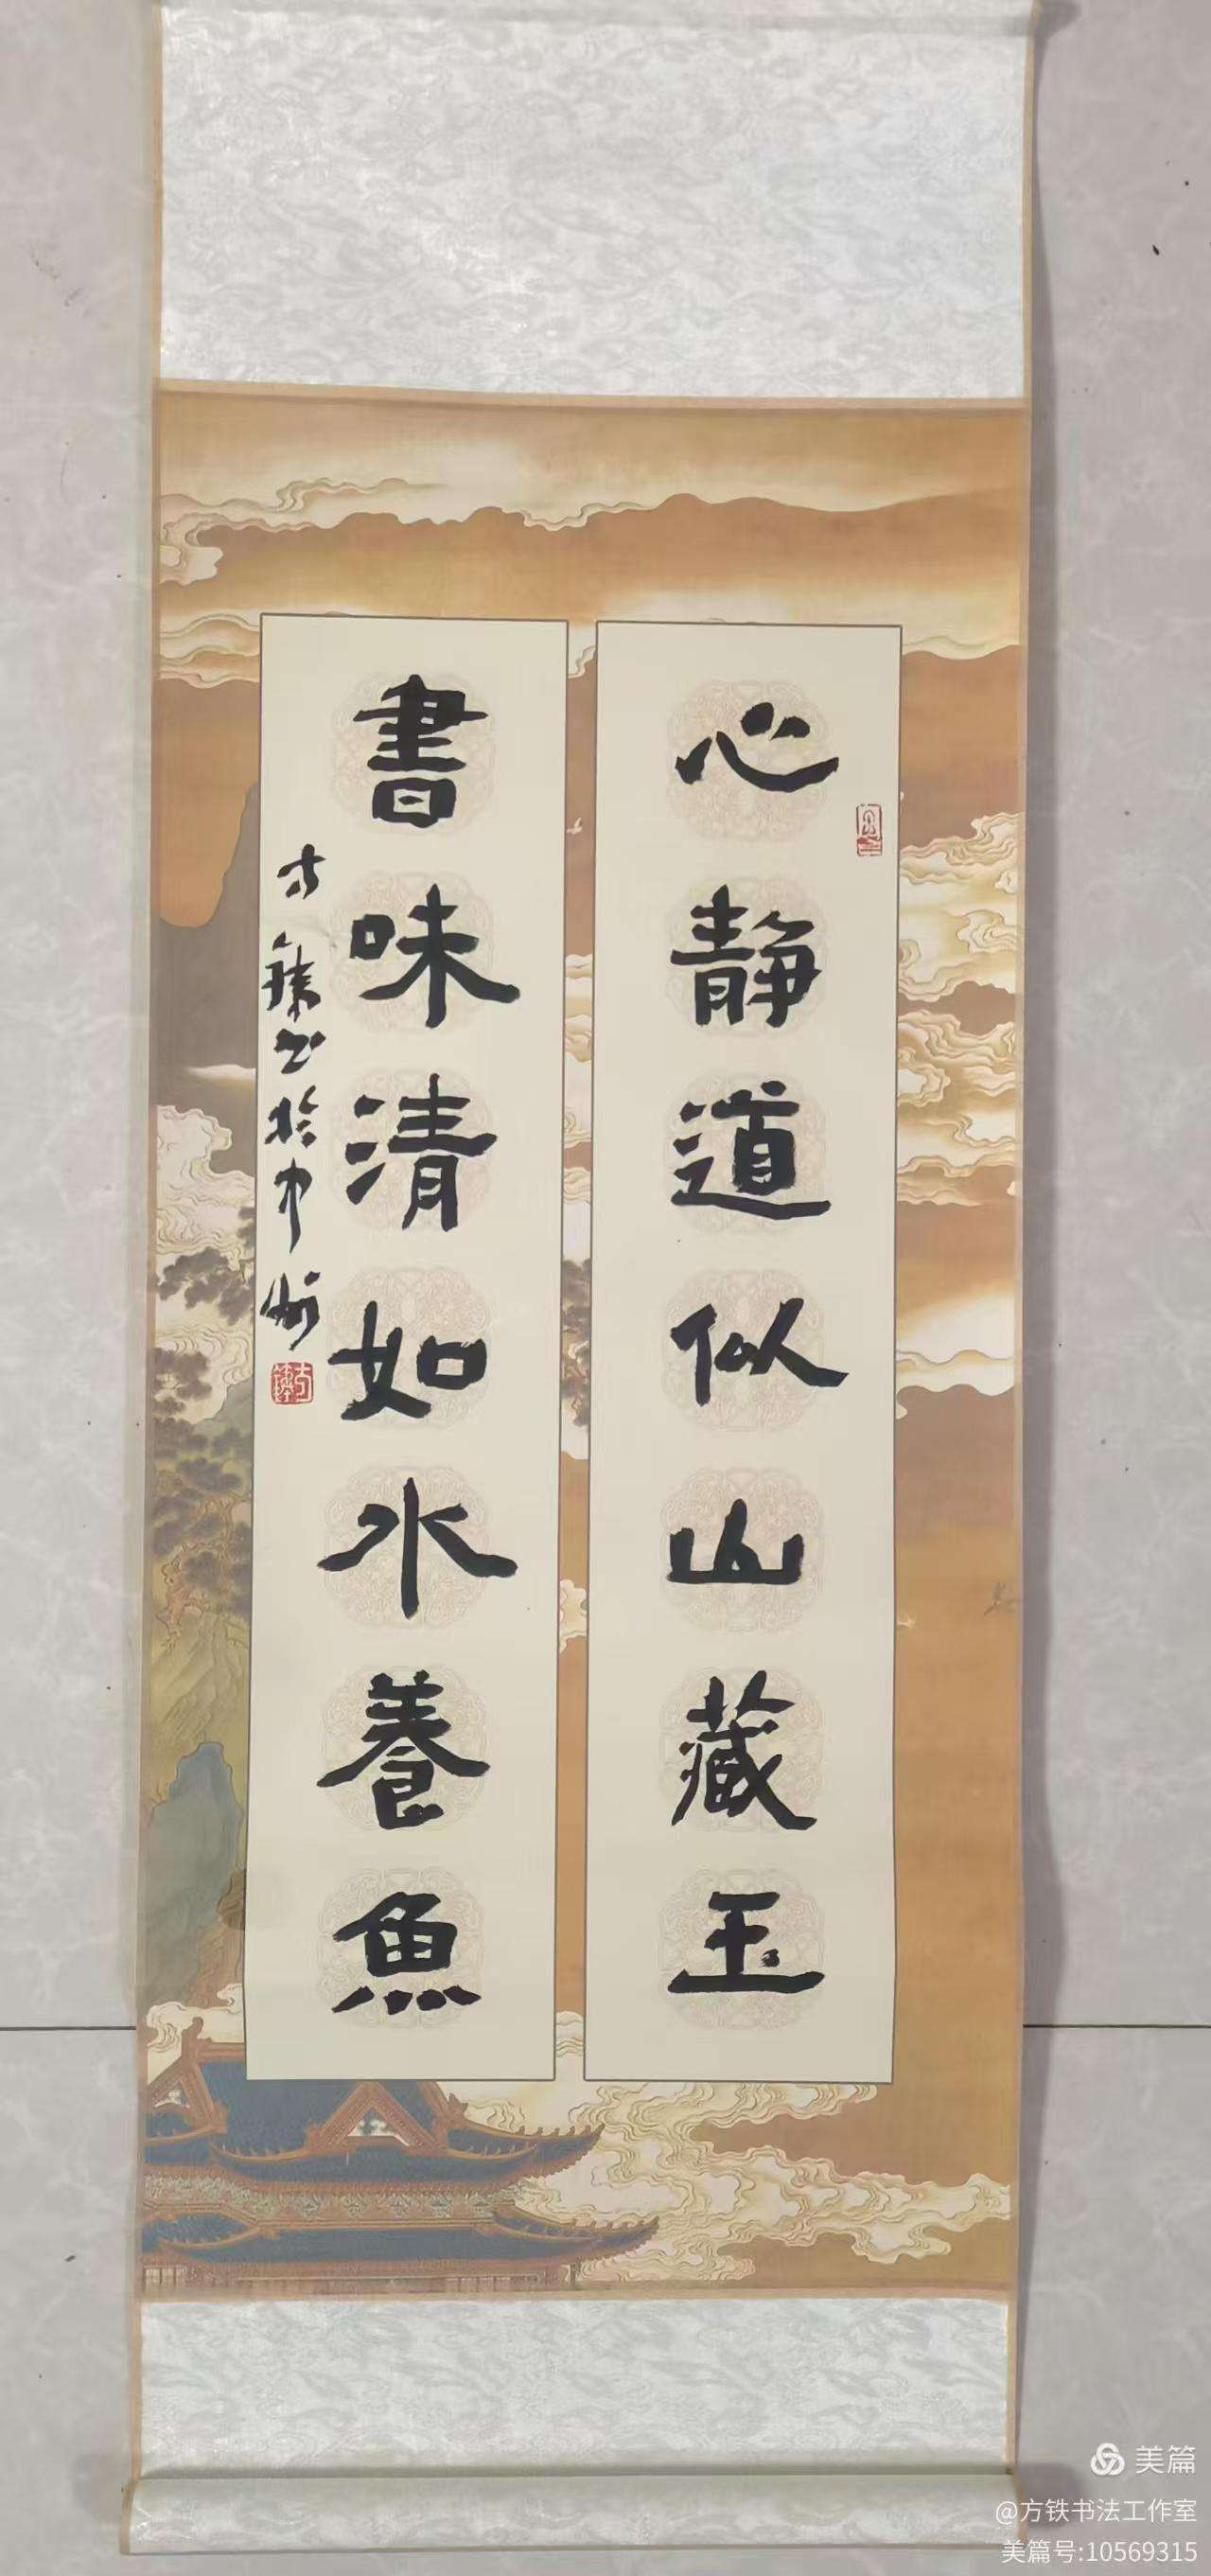 心静道似山藏玉
書味清如水養魚
方鐵书於中州
美篇
@方铁书法工作室
美篇号:10569315